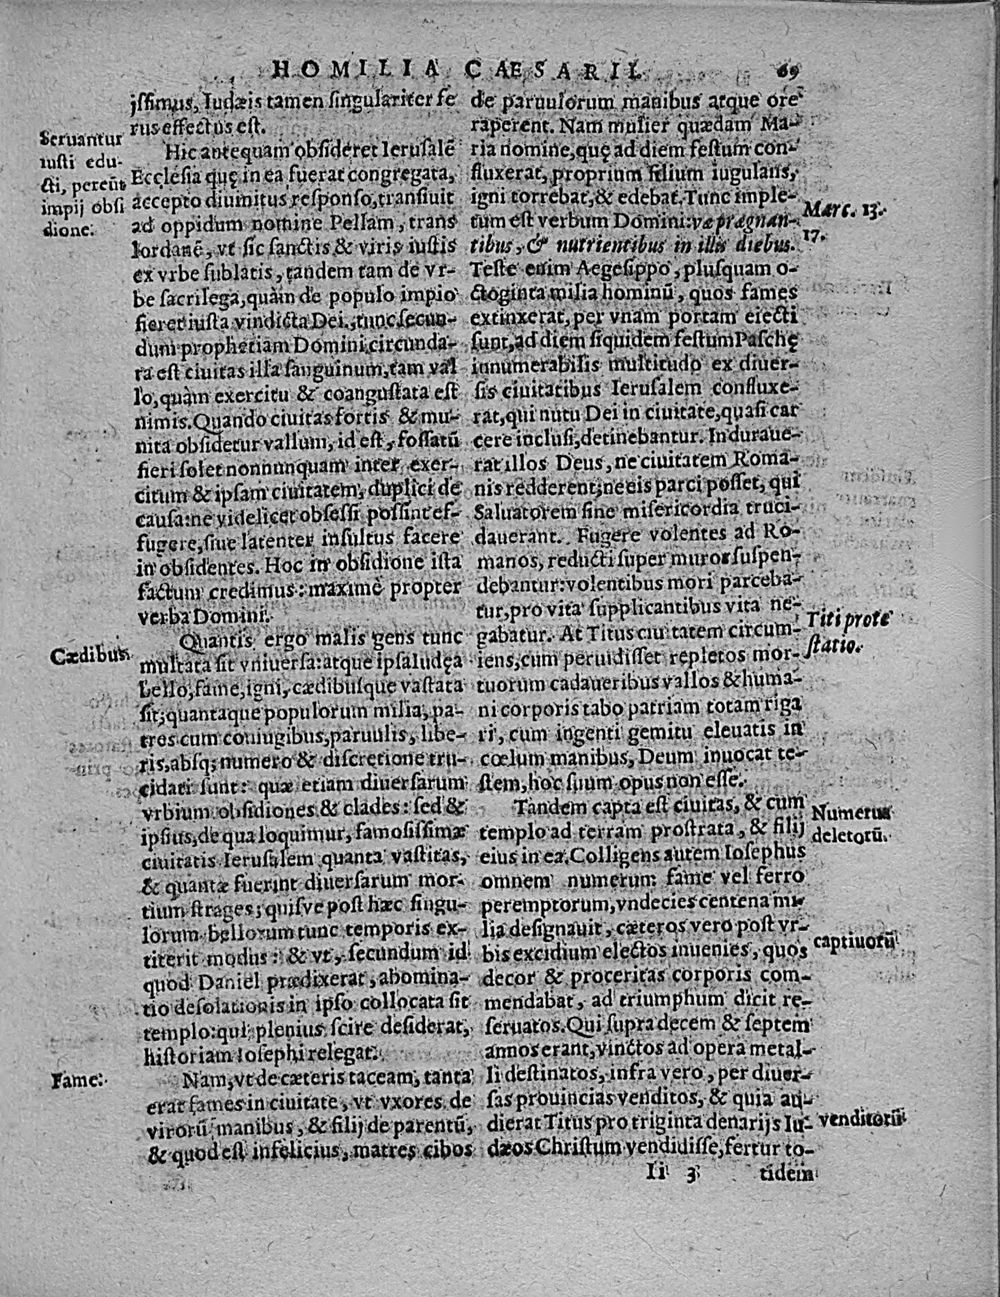 HOMILIA CÆSARII. 69
Seruantur
iusti edu-
cti, pereũt
impij obsi
dione.
jssimus, Iudæis tamen singulariter fe
rus effectus est.
Hic antequam obsideret Ierusalẽ
Ecclesia quę in ea fuerat congregata,
accepto diuinitus responso, transiuit
ad oppidum nomine Pellam, trans
Iordanẽ, vt sic sanctis & viris iustis
ex vrbe sublatis, tandem tam de vr-
be sacrilega, quàm de populo impio
fieret iusta vindicta Dei., tunc secun-
dum prophetiam Domini, circunda-
ra est ciuitas illa sanguinum, tam val
lo, quàm exercitu & coangustata est
nimis. Quando ciuitas fortis & mu-
nita obsidetur vallum, id est, fossatũ
fieri solet nonnunquam inter exer-
citum & ipsam ciuitatem, duplici de
causa: ne videlicet obsessi possint ef-
fugere, siue latenter insultus facere
in obsidentes. Hoc in obsidione ista
factum credimus: maximè propter
verba Domini.
Cædibus.
Quantis ergo malis gens tunc
multata sit vniuersa: atque ipsa Iudęa
bello, fame, igni, cædibusque vastata
sit; quantaque populorum milia, pa-
tres cum coniugibus, paruulis, libe-
ris, absq; numero & discretione tru-
cidati sunt: quæ etiam diuersarum
vrbium obsidiones & clades: sed &
ipsius, de qua loquimur, famosissimæ
ciuitatis Ierusalem quanta vastitas,
& quantæ fuerint diuersarum mor-
tium strages; quisve post hæc singu-
lorum bellorum tunc temporis ex-
titerit modus: & vt, secundum id
quod Daniel prædixerat, abomina-
tio desolationis in ipso collocata sit
templo: qui plenius scire desiderat,
historiam Iosephi relegat.
Fame.
Nam, vt de cæteris taceam, tanta
erat fames in ciuitate, vt vxores de
virorũ manibus, & filij de parentũ,
& quod est infelicius, matres cibos
de paruulorum manibus atque ore
raperent. Nam mulier quædam Ma-
ria nomine, quę ad diem festum con-
fluxerat, proprium filium iugulans,
igni torrebat, & edebat. Tunc imple-
tum est verbum Domini: væ prægnan-
tibus, & nutrientibus in illis diebus.
Marc. 13.
17.
Teste enim Aegesippo, plusquam o-
ctoginta milia hominũ, quos fames
extinxerat, per vnam portam eiecti
sunt, ad diem siquidem festum Paschę
innumerabilis multitudo ex diuer-
sis ciuitatibus Ierusalem confluxe-
rat, qui nutu Dei in ciuitate, quasi car
cere inclusi, detinebantur. Indurauе-
rat illos Deus, ne ciuitatem Roma-
nis redderent, ne eis parci posset, qui
Saluatorem sine misericordia truci-
dauerant. Fugere volentes ad Ro-
manos, reducti super muros suspen-
debantur: volentibus mori parceba-
tur, pro vita supplicantibus vita ne-
gabatur. At Titus ciuitatem circum-
iens, cum peruidisset repletos mor-
tuorum cadaueribus vallos & huma-
ni corporis tabo patriam totam riga
ri, cum ingenti gemitu eleuatis in
cœlum manibus, Deum inuocat te-
stem, hoc suum opus non esse.
Titi prote
statio.
Tandem capta est ciuitas, & cum
templo ad terram prostrata, & filij
eius in ea. Colligens autem Iosephus
omnem numerum fame vel ferro
peremptorum, vndecies centena mi
lia designauit, cæteros vero post vr-
bis excidium electos inuenies, quos
decor & proceritas corporis com-
mendabat, ad triumphum dicit re-
seruatos. Qui supra decem & septem
annos erant, vinctos ad opera metal-
li destinatos, infra vero, per diuer-
sas prouincias venditos, & quia au-
dierat Titus pro triginta denarijs Iu-
dæos Christum vendidisse, fertur to-
Numerus
deletorũ.
captiuorũ
venditorũ
Ii 3 tidein